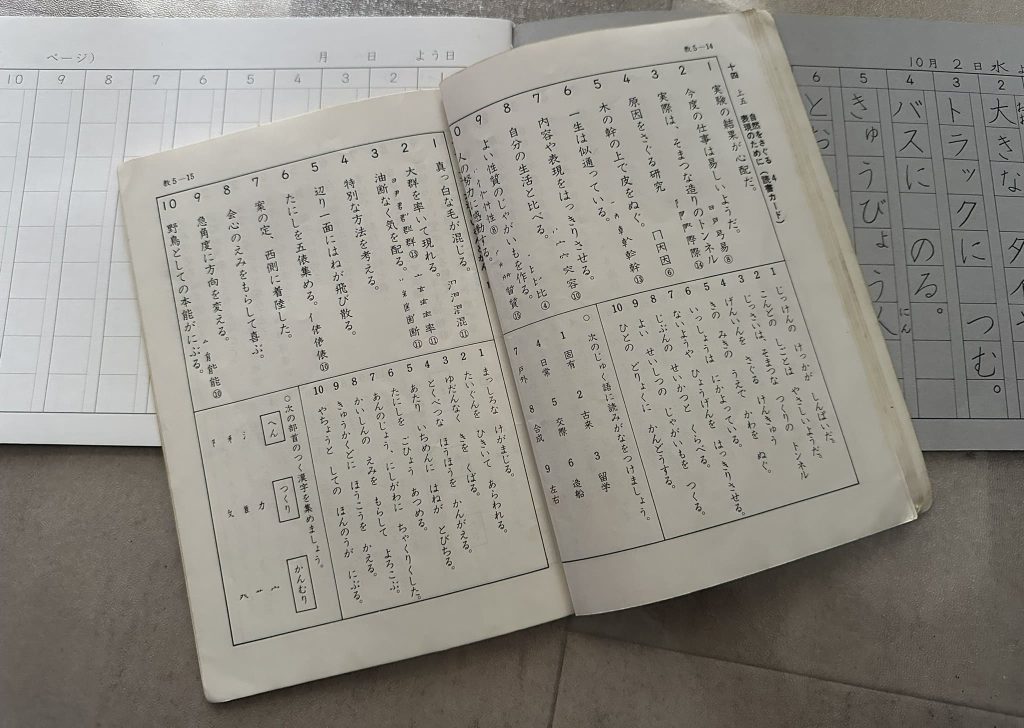 教5－14
十四 上五 自然をさぐる
表現のために(読書カード)4
1 実験の結果が心配だ。
2 今度の仕事は易しいようだ。易⑧
3 実際は、そまつな造りのトンネル 際⑭
4 原因をさぐる研究 因⑥
5 木の幹の上で皮をぬぐ。幹⑬
6 一生は似通っている。
7 内容や表現をはっきりさせる。容⑩
8 自分の生活と比べる。比④
9 よい性質のじゃがいもを作る。性⑧ 質⑮
1 じっけんの けっかが しんぱいだ。
2 こんどの しごとは やさしいようだ。
3 じっさいは、そまつな つくりの トンネル
4 げんいんを さぐる けんきゅう
5 きの みきの うえで かわを ぬぐ。
6 いっしょうは にかよっている。
7 ないようや ひょうげんを はっきりさせる。
8 じぶんの せいかつと くらべる。
9 よい せいしつの じゃがいもを つくる。
10 ひとの どりょくに かんどうする。
○次のじゅく語に読みがなをつけましょう。
1 固有 2 古来 3 留学
4 日常 5 交際 6 造船
7 戸外 8 合成 9 左右
教5－15
1 真っ白な毛が混じる。混⑪
2 大群を率いて現れる。群⑬ 率⑪
3 油断なく気を配る。断⑪
4 特別な方法を考える。
5 辺り一面にはねが飛び散る。
6 たにしを五俵集める。俵⑩
7 案の定、西側に着陸した。
8 会心のえみをもらして喜ぶ。
9 急角度に方向を変える。
10 野鳥としての本能がにぶる。能⑩
1 まっしろな けがまじる。
2 たいぐんを ひきいて あらわれる。
3 ゆだんなく きを くばる。
4 とくべつな ほうほうを かんがえる。
5 あたり いちめんに はねが とびちる。
6 たにしを ごひょう あつめる。
7 あんのじょう、にしがわに ちゃくりくした。
8 かいしんの えみを もらして よろこぶ。
9 きゅうかくどに ほうこうを かえる。
10 やちょうと しての ほんのうが にぶる。
○次の部首のつく漢字を集めましょう。
へん
つくり
かんむり
ページ)
月 日 よう日
10 9 8 7 6 5 4 3 2 1
10月 2日 水
2 大きな
つむ。
3 トラックに
4 バスに のる。
5 きゅうびょう人
にん
6